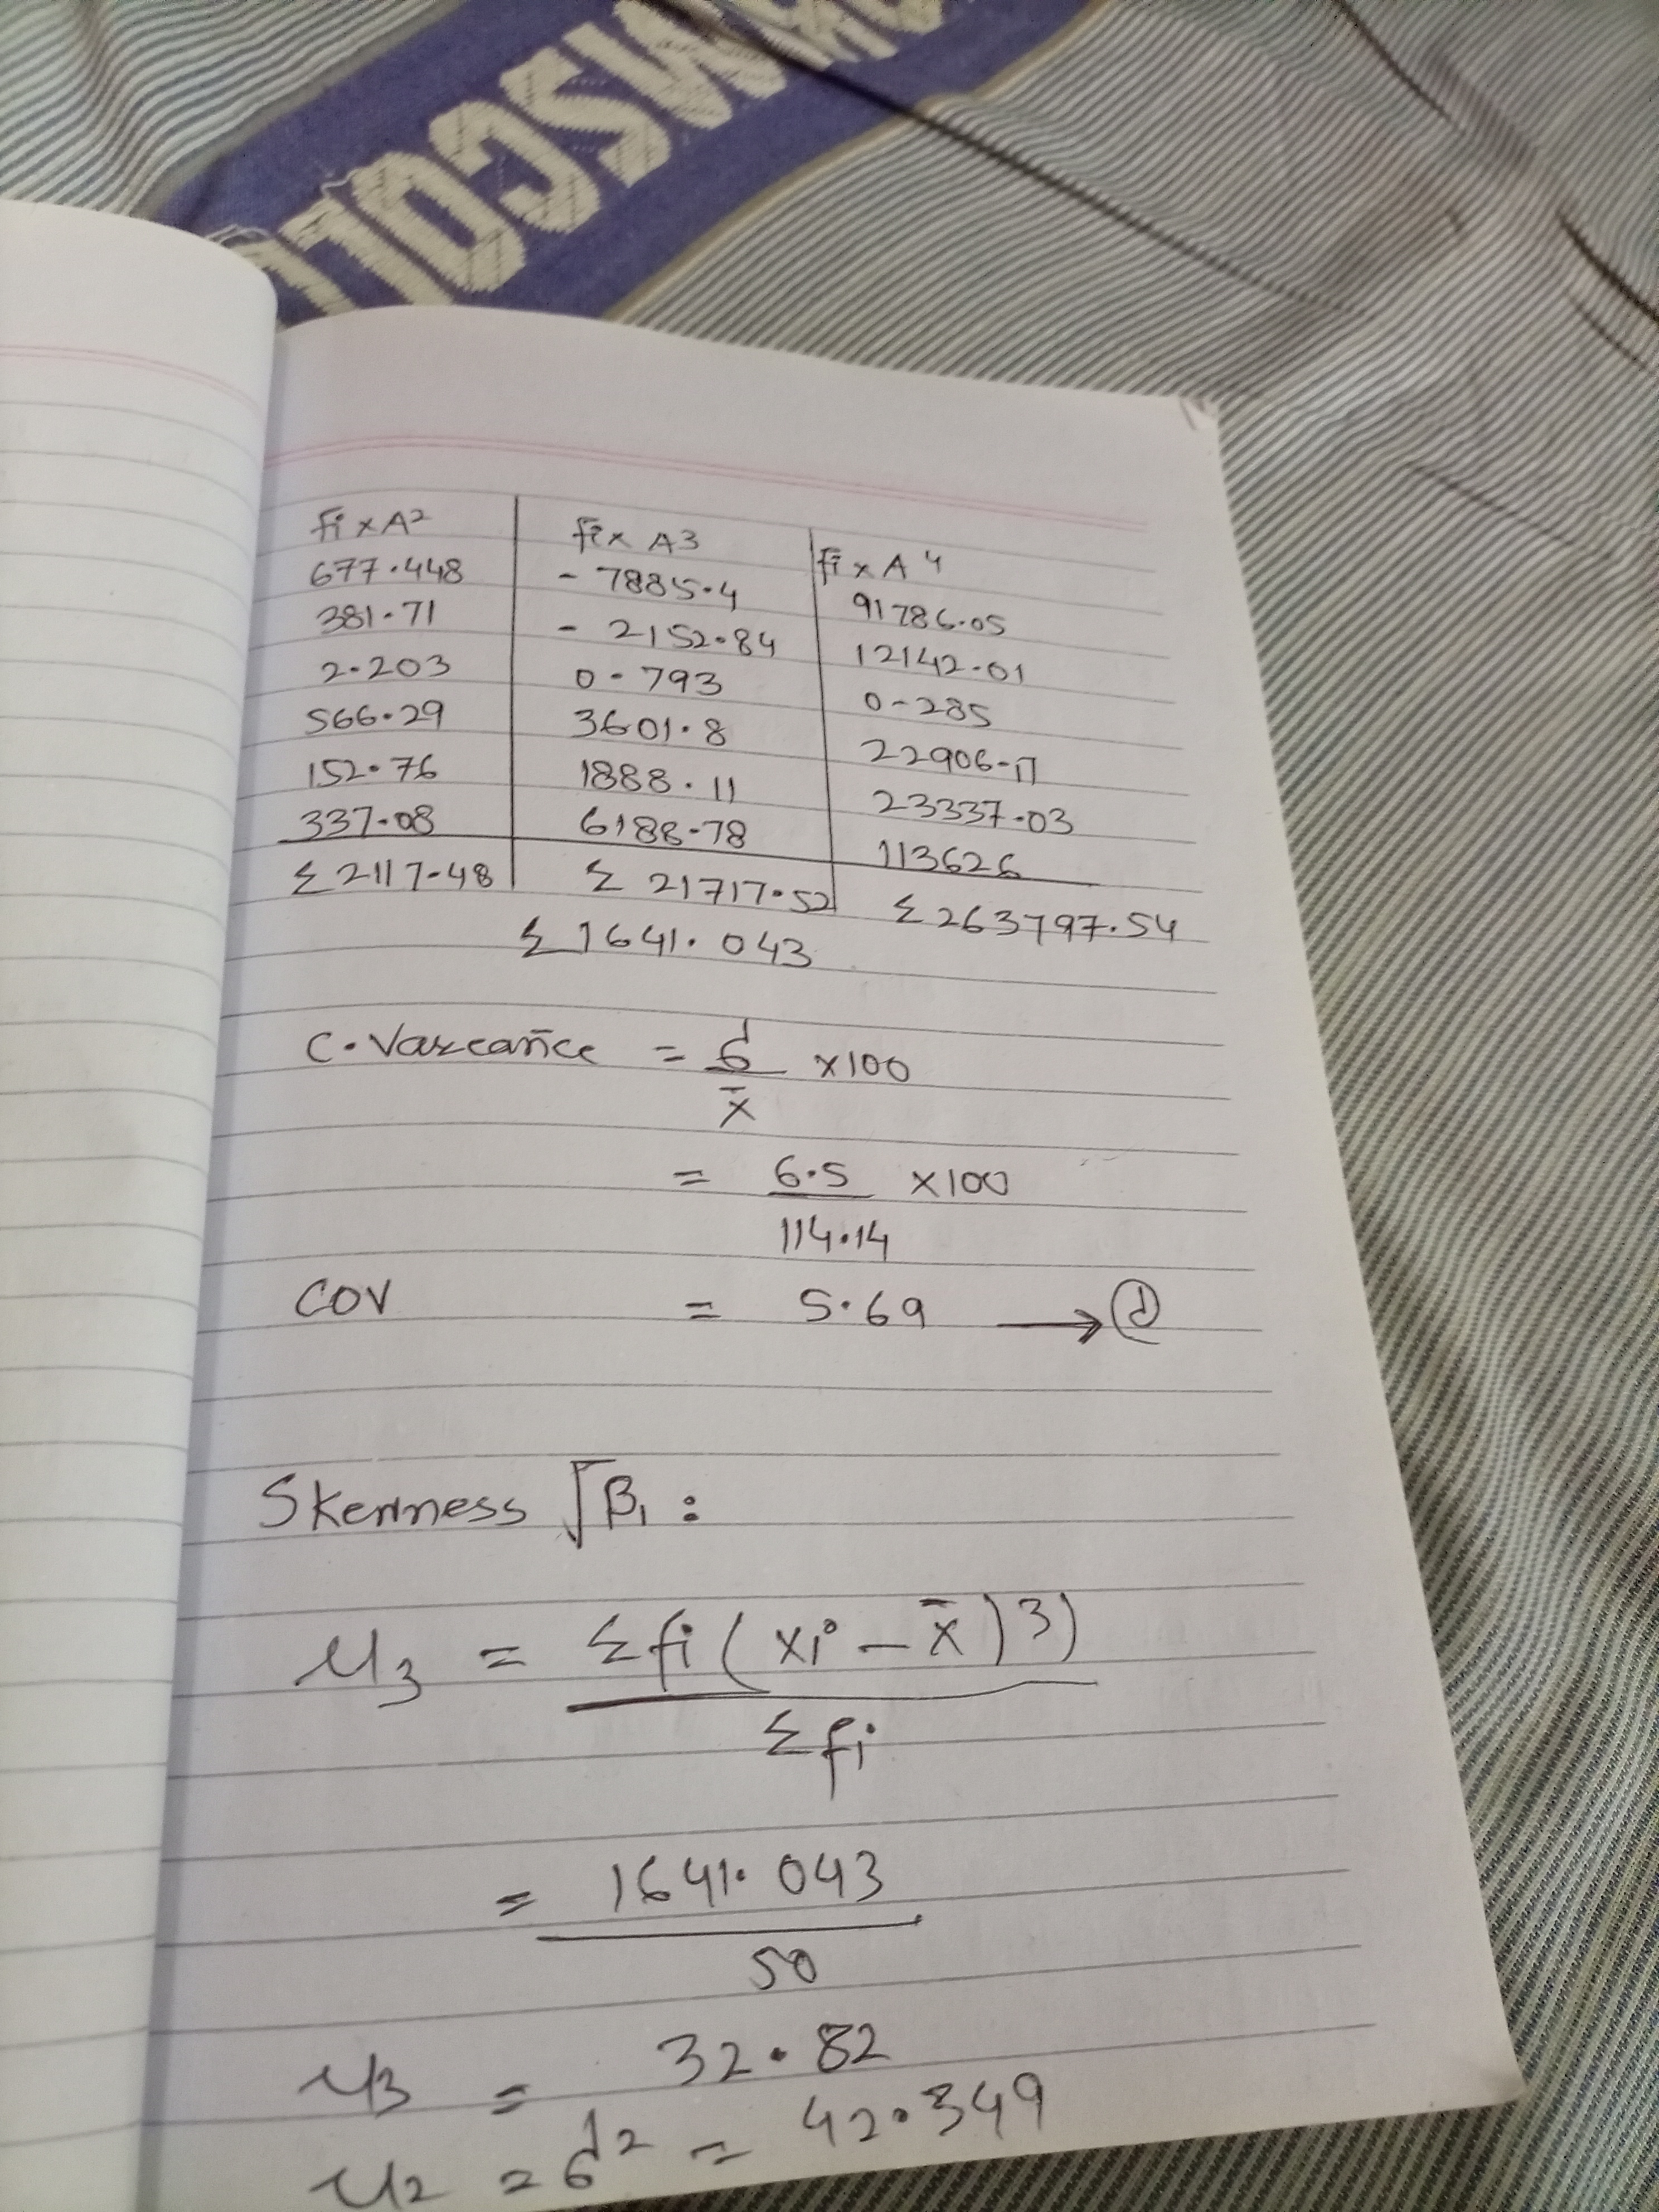 fi x A²
fi x A3
fi x A⁴
677.448
- 7885.4
91786.05
381.71
- 2152.84
12142.01
2.203
0.793
0.285
566.29
3601.8
22906.17
152.76
1888.11
23337.03
337.08
6188.78
113626
Σ 2117.48
Σ 21717.52
Σ 263797.54
Σ 1641.043
C. Variance = σ/x̄ x100
= 6.5/114.14 x100
COV = 5.69 → ①
Skewness √β₁ :
μ3 = Σfi(xi - x̄)3) / Σfi
= 1641.043 / 50
μ3 = 32.82
μ2 = σ² = 42.349